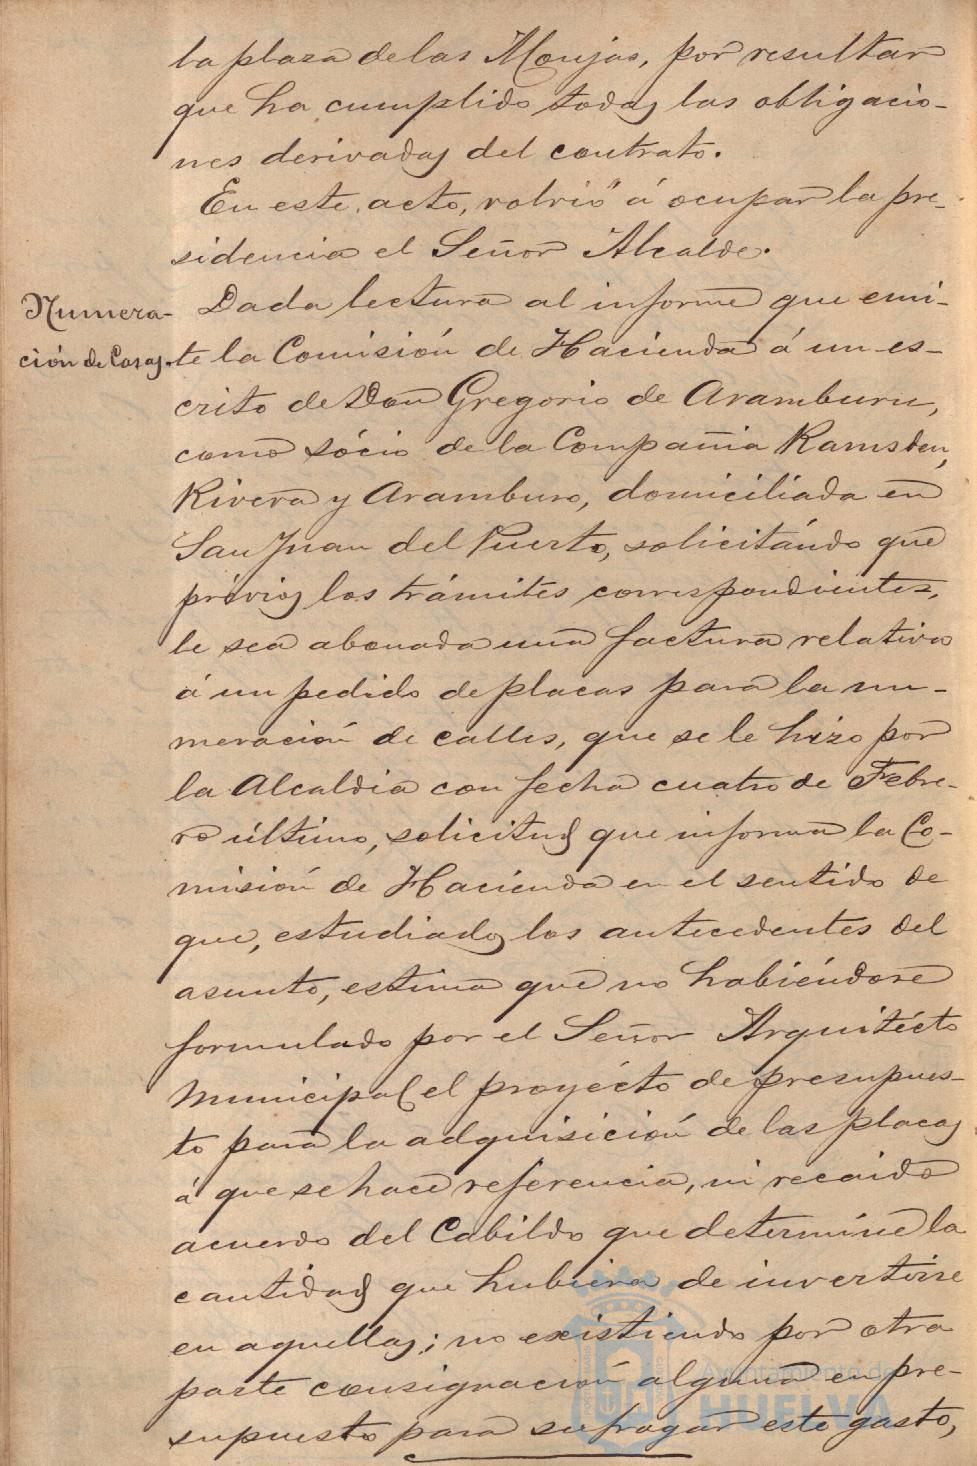 la plaza de las Monjas, por resultar
que ha cumplido todas las obligacio-
nes derivadas del contrato.
En este acto, volvió á ocupar la pre-
sidencia el Señor Alcalde.
Numera-
ción de Casas.
Dada lectura al informe que emi-
te la Comisión de Hacienda á un es-
crito de Don Gregorio de Aramburu,
como sócio de la Compañia Ramsden,
Rivera y Aramburo, domiciliada en
San Juan del Puerto, solicitándo que
prévios los trámites correspondientes,
le sea abonada una factura relativa
á un pedido de placas para la nu-
meración de calles, que se le hizo por
la Alcaldia con fecha cuatro de Febre-
ro último, solicitud que informa la Co-
misión de Hacienda en el sentido de
que, estudiados los antecedentes del
asunto, estima que no habiéndose
formulado por el Señor Arquitécto
Municipal el proyécto de presupues-
to para la adquisición de las placas
á que se hace referencia, ni recaido
acuerdo del Cabildo que determine la
cantidad que hubiera de invertirse
en aquellas; no existiendo por otra
parte consignación alguna en pre-
supuesto para sufragar este gasto,
Ayuntamiento de
HUELVA